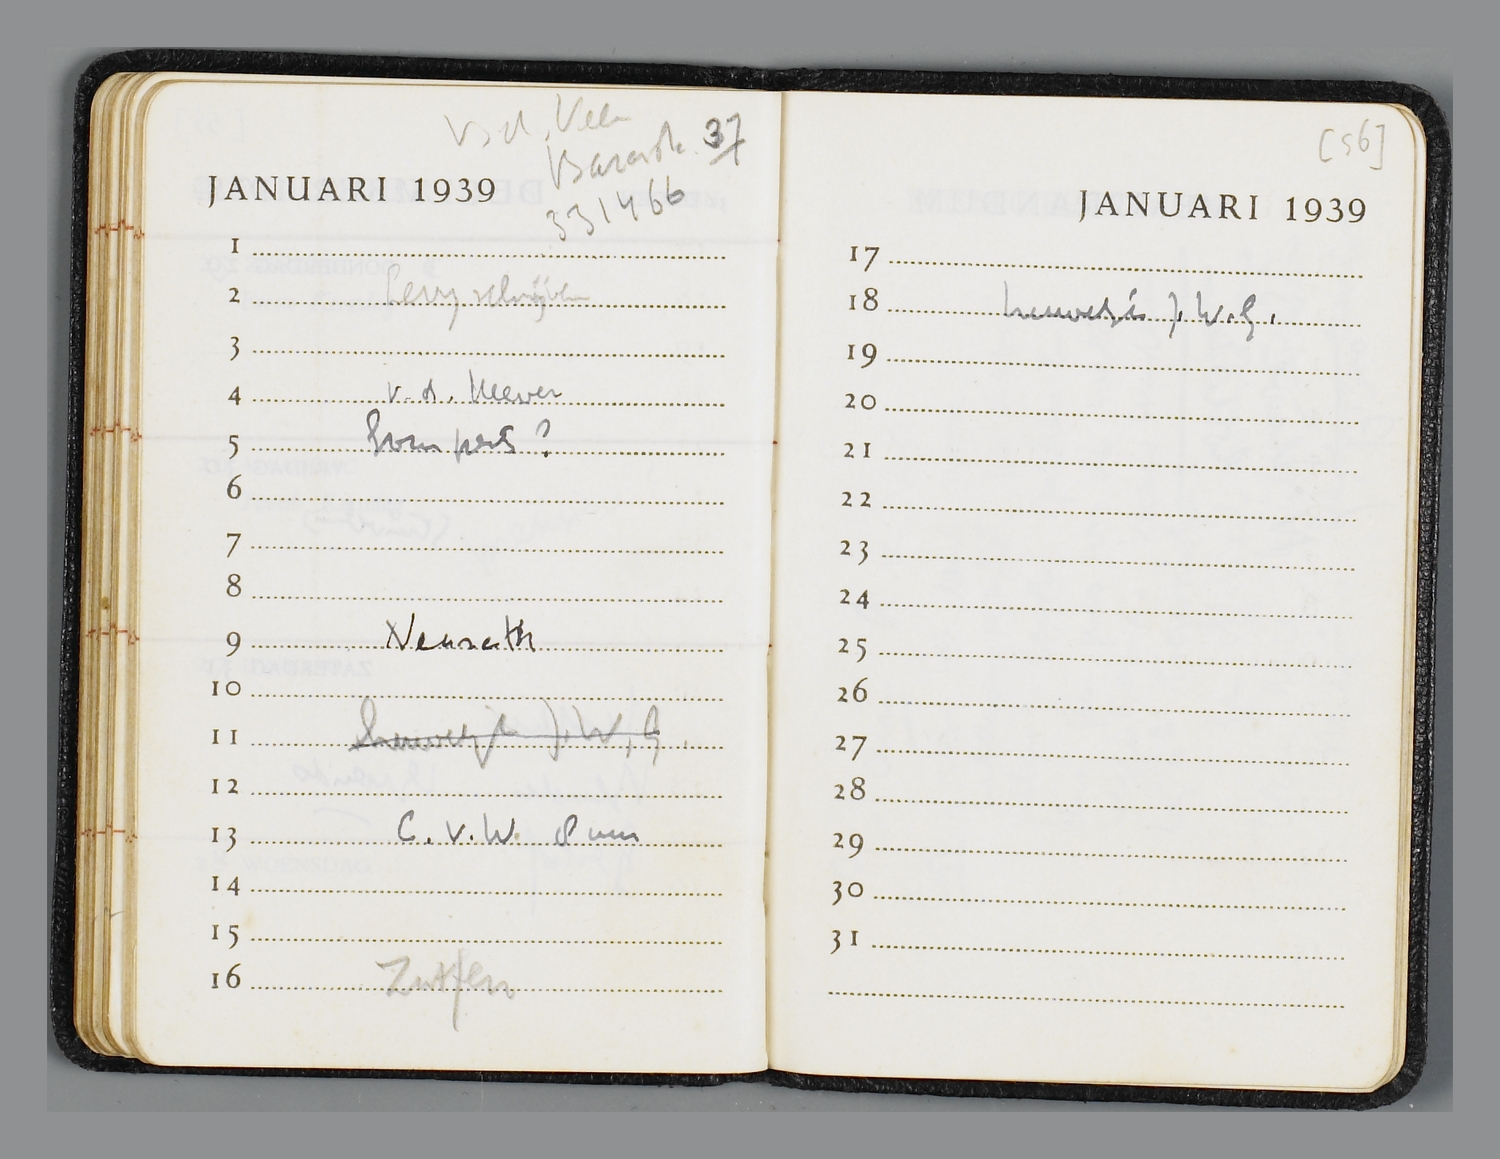 v. d. Veen
37
331466
JANUARI 1939
1
2 Levy schrijven
3
4 v. d. Meever
5 Gompers?
6
7
8
9 Neurath
10
11 J. W. G.
12
13 C. v. W.
14
15
16 Zutfen
[56]
JANUARI 1939
17
18 J. W. G.
19
20
21
22
23
24
25
26
27
28
29
30
31